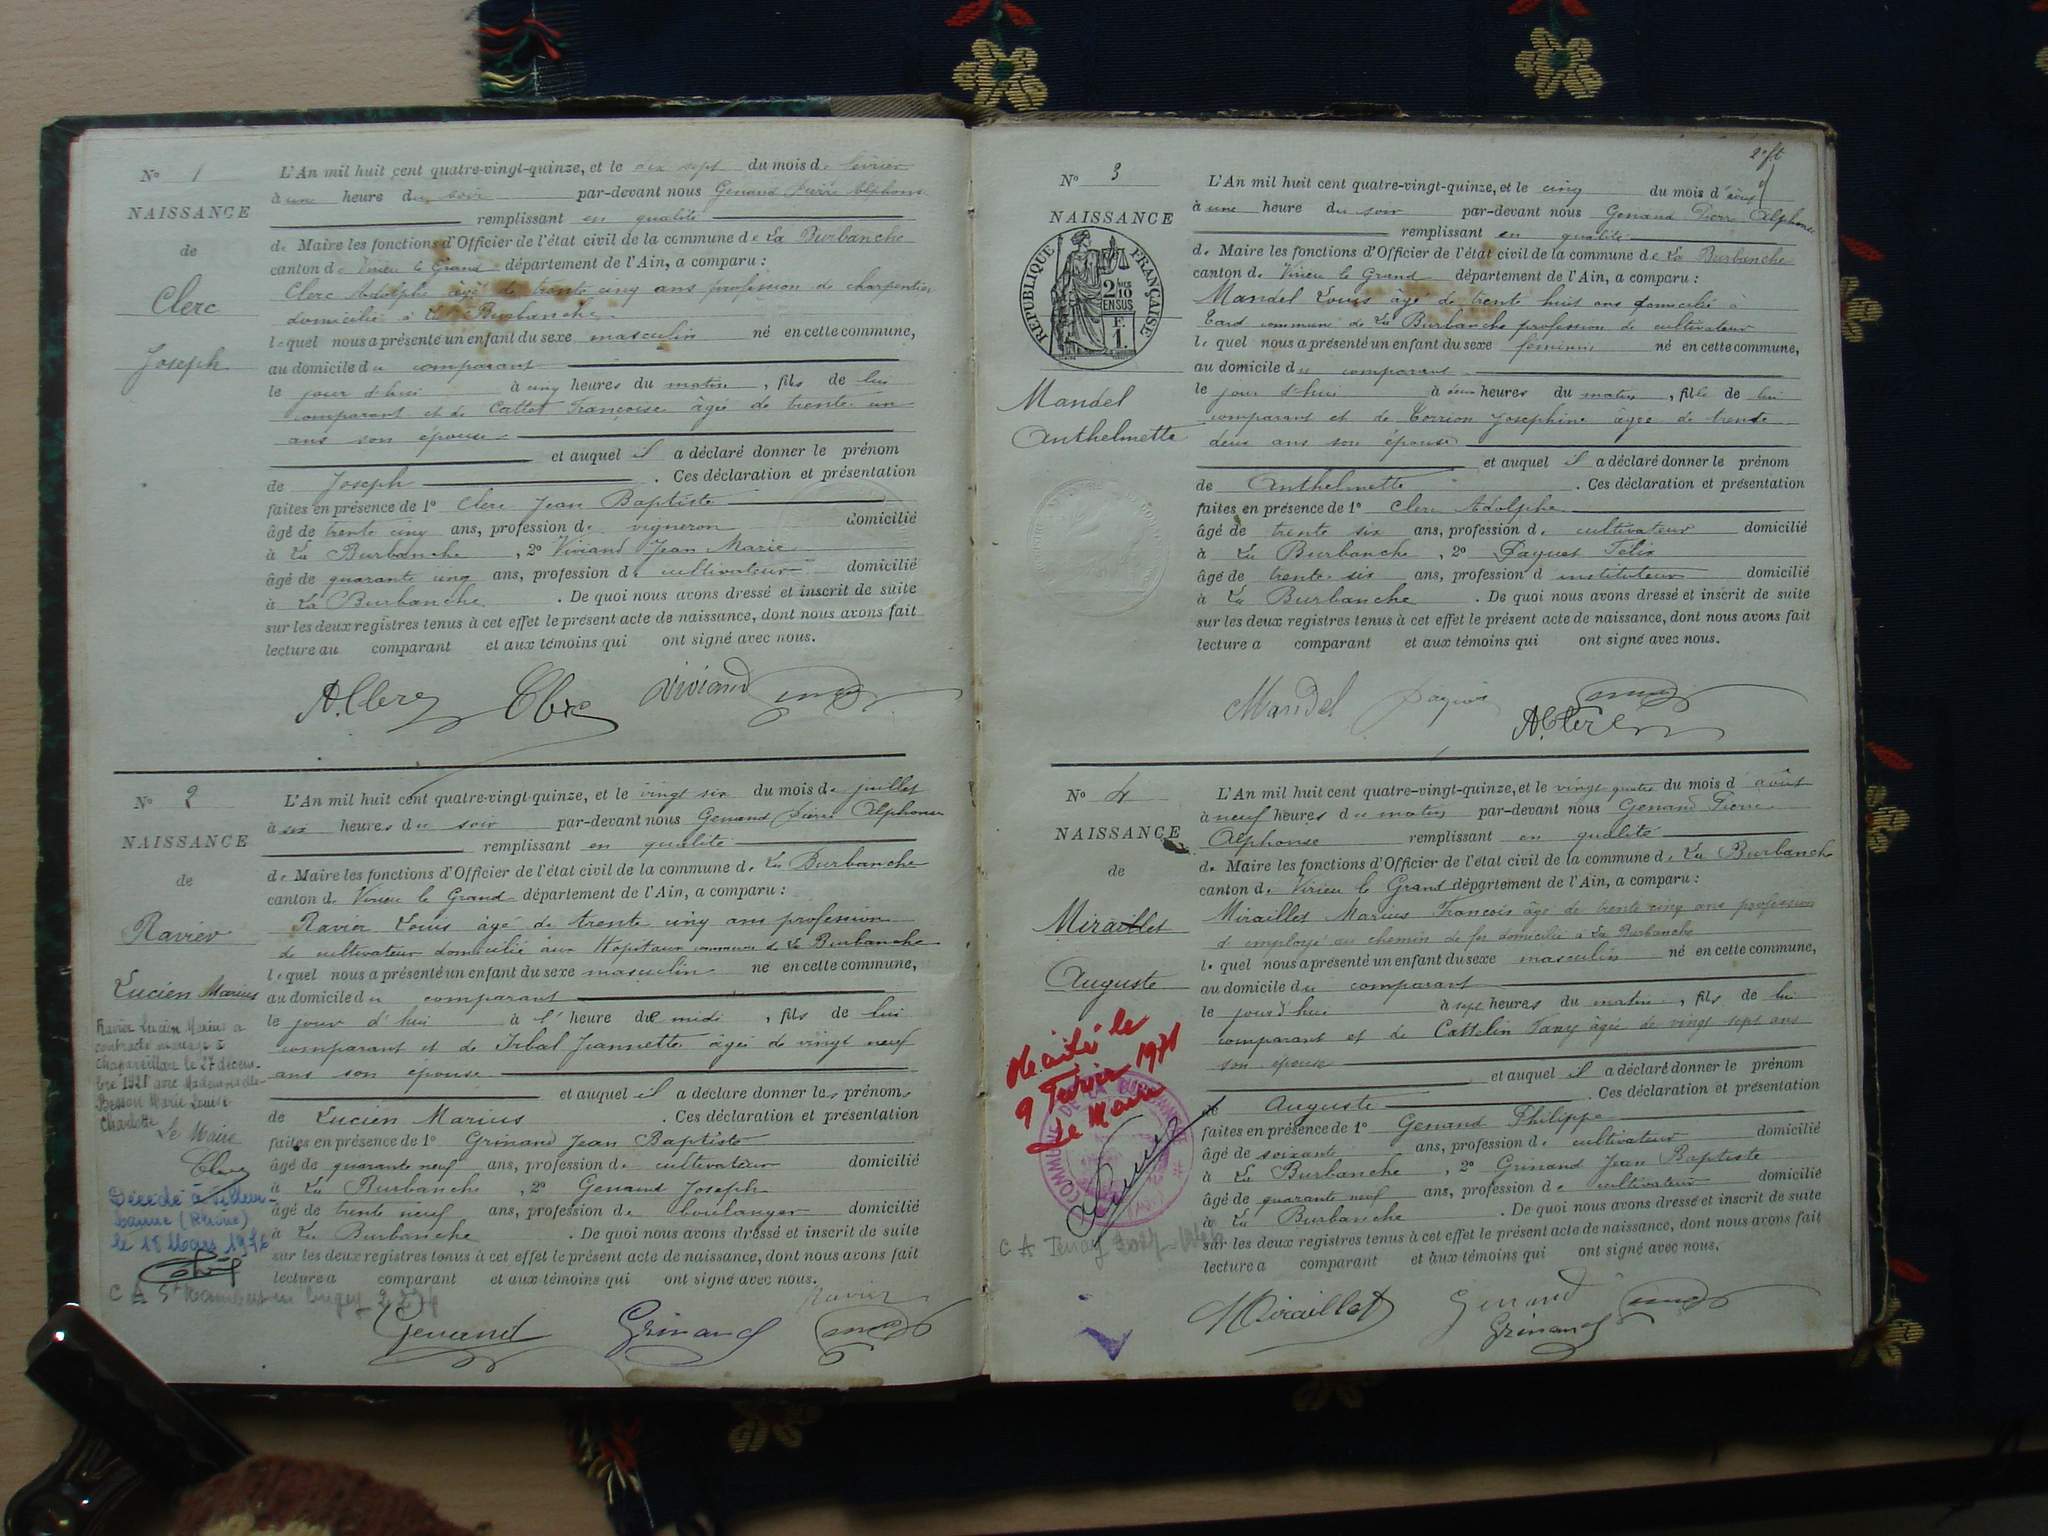 N° 1
NAISSANCE
de
Clerc
Joseph
L'An mil huit cent quatre-vingt-quinze, et le dix sept du mois de février
à une heure du soir par-devant nous Genand Pierre Alphonse
remplissant en qualité
de Maire les fonctions d'Officier de l'état civil de la commune de La Burbanche
canton de Virieu le Grand département de l'Ain, a comparu :
Clerc Adolphe âgé de trente cinq ans profession de charpentier
domicilié à La Burbanche
lequel nous a présenté un enfant du sexe masculin né en cette commune,
au domicile du comparant
le jour d'hui à cinq heures du matin, fils de lui
comparant et de Cattet Françoise âgée de trente un
ans son épouse
et auquel il a déclaré donner le prénom
de Joseph . Ces déclaration et présentation
faites en présence de 1° Clerc Jean Baptiste
âgé de trente cinq ans, profession de vigneron domicilié
à La Burbanche , 2° Viviand Jean Marie
âgé de quarante cinq ans, profession de cultivateur domicilié
à La Burbanche . De quoi nous avons dressé et inscrit de suite
sur les deux registres tenus à cet effet le présent acte de naissance, dont nous avons fait
lecture au comparant et aux témoins qui ont signé avec nous.
A. Clerc Clerc Viviand
N° 2
NAISSANCE
de
Ravier
Lucien Marius
L'An mil huit cent quatre-vingt-quinze, et le vingt six du mois de juillet
à six heures du soir par-devant nous Genand Pierre Alphonse
remplissant en qualité
de Maire les fonctions d'Officier de l'état civil de la commune de La Burbanche
canton de Virieu le Grand département de l'Ain, a comparu :
Ravier Louis âgé de trente cinq ans profession
de cultivateur domicilié aux Hôpitaux commune de La Burbanche
lequel nous a présenté un enfant du sexe masculin né en cette commune,
au domicile du comparant
le jour d'hui à l'heure de midi , fils de lui
comparant et de Irbal Jeannette âgée de vingt neuf
ans son epouse
et auquel il a déclaré donner les prénoms
de Lucien Marius . Ces déclaration et présentation
faites en présence de 1° Grinand Jean Baptiste
âgé de quarante neuf ans, profession de cultivateur domicilié
à La Burbanche , 2° Genand Joseph
âgé de trente neuf ans, profession de boulanger domicilié
à La Burbanche . De quoi nous avons dressé et inscrit de suite
sur les deux registres tenus à cet effet le présent acte de naissance, dont nous avons fait
lecture a comparant et aux témoins qui ont signé avec nous.
Ravier
Genand Grinand
Ravier Lucien Marius a
contracté mariage à
Chapareillan le 27 décem-
bre 1921 avec Mademoiselle
Besson Marie Louise
Charlotte Le Maire
Décédé à Villeur-
banne (Rhône)
le 18 Mars 1976
C A St Rambert en Bugey
N° 3
NAISSANCE
RÉPUBLIQUE FRANÇAISE
2/10 EN SUS
F.
1.
Mandel
Anthelmette
2e ft
L'An mil huit cent quatre-vingt-quinze, et le cinq du mois d'août
à une heure du soir par-devant nous Genand Pierre Alphonse
remplissant en qualité
de Maire les fonctions d'Officier de l'état civil de la commune de La Burbanche
canton de Virieu le Grand département de l'Ain, a comparu :
Mandel Louis âgé de trente huit ans domicilié à
Tard commune de La Burbanche profession de cultivateur
lequel nous a présenté un enfant du sexe féminin né en cette commune,
au domicile du comparant
le jour d'hui à deux heures du matin , fille de lui
comparant et de Corrion Joséphine âgée de trente
deux ans son épouse
et auquel il a déclaré donner le prénom
de Anthelmette . Ces déclaration et présentation
faites en présence de 1° Clerc Adolphe
âgé de trente six ans, profession de cultivateur domicilié
à La Burbanche , 2° Paquet Félix
âgé de trente six ans, profession d instituteur domicilié
à La Burbanche . De quoi nous avons dressé et inscrit de suite
sur les deux registres tenus à cet effet le présent acte de naissance, dont nous avons fait
lecture a comparant et aux témoins qui ont signé avec nous.
Mandel
A Clerc
N° 4
NAISSANCE
de
Miraillet
Auguste
L'An mil huit cent quatre-vingt-quinze, et le vingt-quatre du mois d'août
à neuf heures du matin par-devant nous Genand Pierre
Alphonse remplissant en qualité
de Maire les fonctions d'Officier de l'état civil de la commune de La Burbanche
canton de Virieu le Grand département de l'Ain, a comparu :
Miraillet Marius François âgé de trente cinq ans profession
d'employé au chemin de fer domicilié à La Burbanche
lequel nous a présenté un enfant du sexe masculin né en cette commune,
au domicile du comparant
le jour d'hui à sept heures du matin , fils de lui
comparant et de Cattelin Fany âgée de vingt sept ans
son épouse
et auquel il a déclaré donner le prénom
de Auguste . Ces déclaration et présentation
faites en présence de 1° Genand Philippe
âgé de soixante ans, profession de cultivateur domicilié
à La Burbanche , 2° Grinand Jean Baptiste
âgé de quarante neuf ans, profession de cultivateur domicilié
à La Burbanche . De quoi nous avons dressé et inscrit de suite
sur les deux registres tenus à cet effet le présent acte de naissance, dont nous avons fait
lecture a comparant et aux témoins qui ont signé avec nous.
Miraillet Genand
Grinand
le
9 Fevrier 1971
Le Maire
C A Tenay